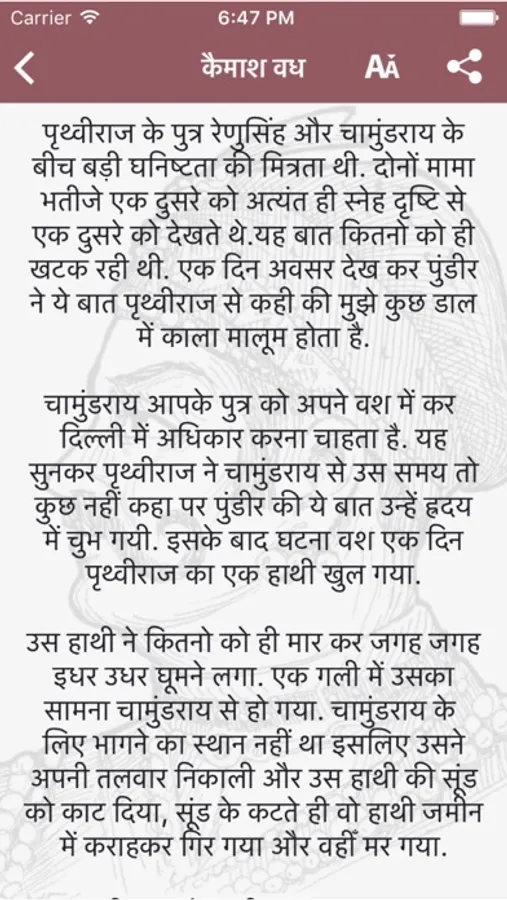 Carrier 6:47 PM
कैमाश वध AA
पृथ्वीराज के पुत्र रेणुसिंह और चामुंडराय के
बीच बड़ी घनिष्टता की मित्रता थी. दोनों मामा
भतीजे एक दुसरे को अत्यंत ही स्नेह दृष्टि से
एक दुसरे को देखते थे.यह बात कितनो को ही
खटक रही थी. एक दिन अवसर देख कर पुंडीर
ने ये बात पृथ्वीराज से कही की मुझे कुछ डाल
में काला मालूम होता है.
चामुंडराय आपके पुत्र को अपने वश में कर
दिल्ली में अधिकार करना चाहता है. यह
सुनकर पृथ्वीराज ने चामुंडराय से उस समय तो
कुछ नहीं कहा पर पुंडीर की ये बात उन्हें ह्रदय
में चुभ गयी. इसके बाद घटना वश एक दिन
पृथ्वीराज का एक हाथी खुल गया.
उस हाथी ने कितनो को ही मार कर जगह जगह
इधर उधर घूमने लगा. एक गली में उसका
सामना चामुंडराय से हो गया. चामुंडराय के
लिए भागने का स्थान नहीं था इसलिए उसने
अपनी तलवार निकाली और उस हाथी की सूंड
को काट दिया, सूंड के कटते ही वो हाथी जमीन
में कराहकर गिर गया और वहीँ मर गया.